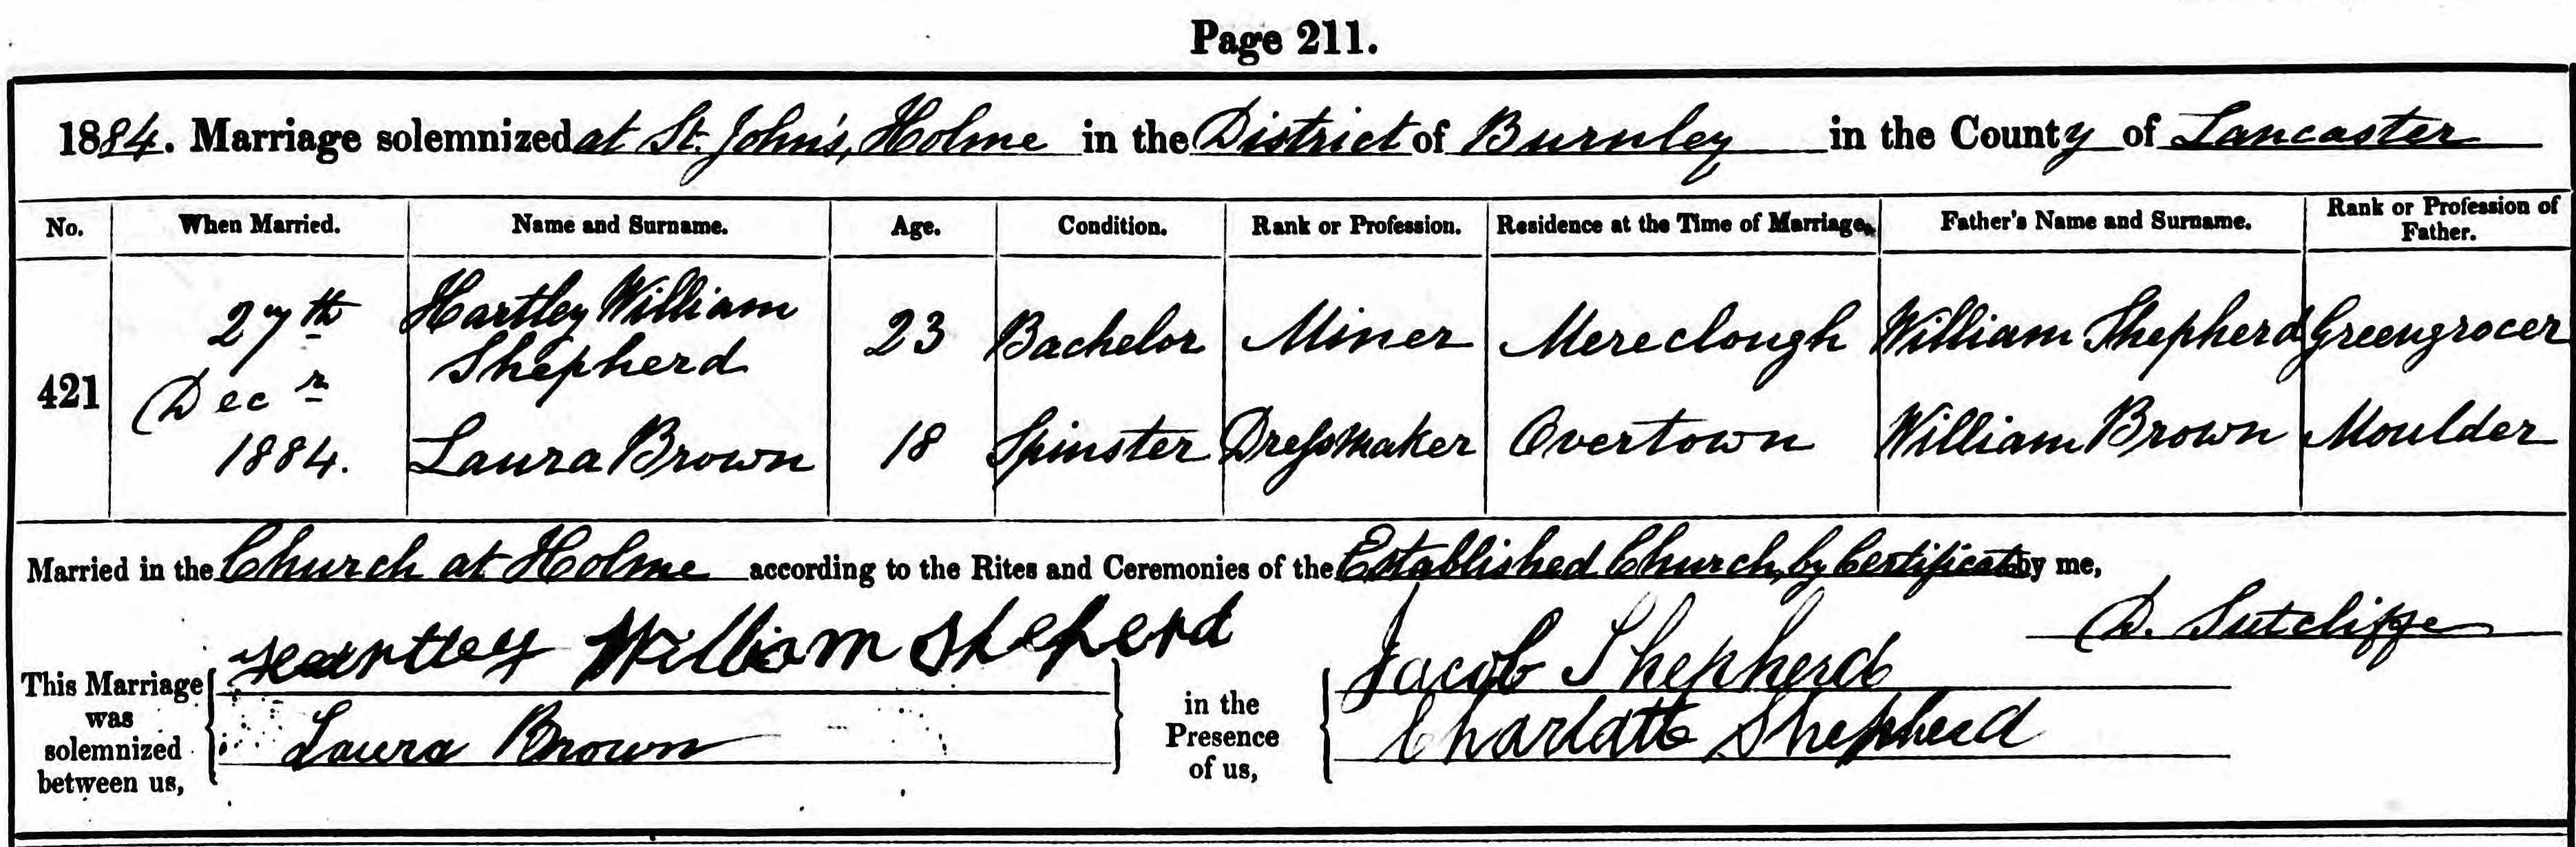 Page 211.
1884. Marriage solemnized at St. John's, Holme in the District of Burnley in the County of Lancaster
No. When Married. Name and Surname. Age. Condition. Rank or Profession. Residence at the Time of Marriage. Father's Name and Surname. Rank or Profession of Father.
421 27th Decr 1884. Hartley William Shepherd 23 Bachelor Miner Mereclough William Shepherd Greengrocer
Laura Brown 18 Spinster Dressmaker Overtown William Brown Moulder
Married in the Church at Holme according to the Rites and Ceremonies of the Established Church, by Certificate by me,
D. Sutcliffe
This Marriage was solemnized between us,
Heartley William Sheperd
Laura Brown
in the Presence of us,
Jacob Shepherd
Charlatte Shepherd